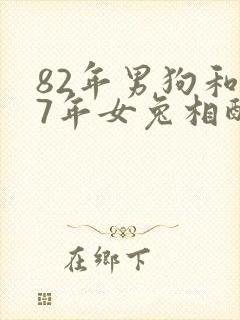 82年男狗和
7年女兔相配
在鄉下